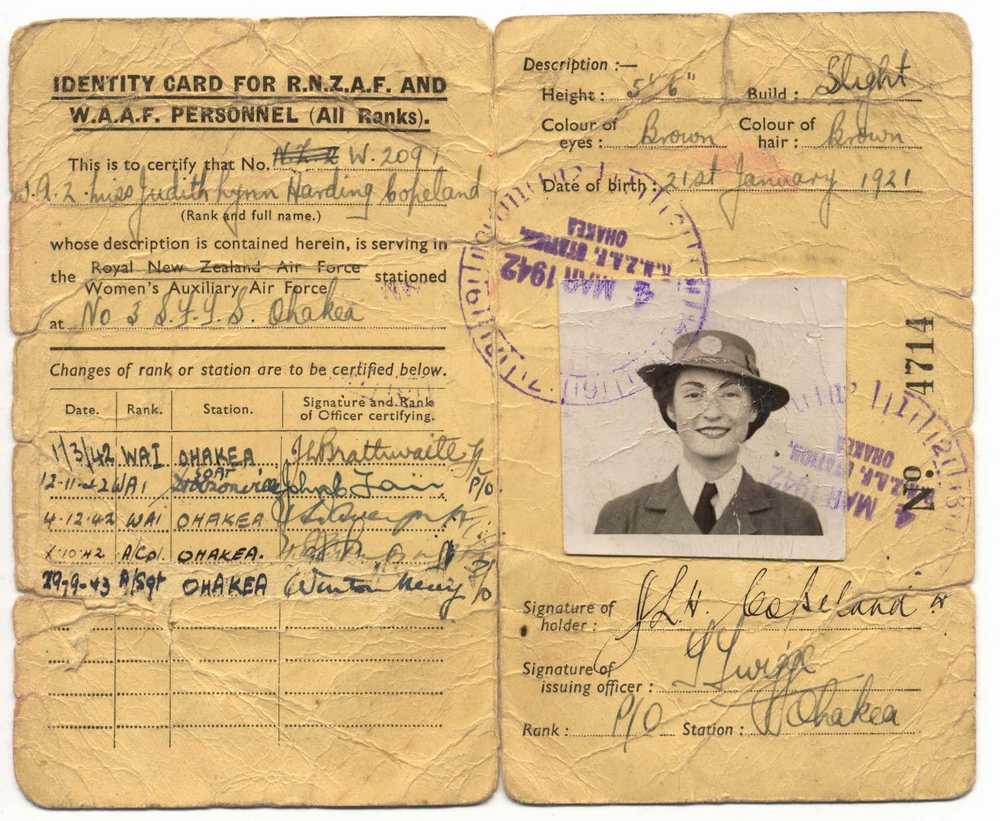 IDENTITY CARD FOR R.N.Z.A.F. AND
W.A.A.F. PERSONNEL (All Ranks).
This is to certify that No. N.Z. W.2091
Miss Judith Lynn Harding Copeland
(Rank and full name.)
whose description is contained herein, is serving in
the Royal New Zealand Air Force stationed
Women's Auxiliary Air Force
at No 3 S.F.T.S. Ohakea
Changes of rank or station are to be certified below.
Date. Rank. Station. Signature and Rank of Officer certifying.
1/3/42 WAI OHAKEA
12-11-42 WAI P/O
4-12-42 WAI OHAKEA
10.42 A/Cpl. OHAKEA.
29-9-43 A/Sgt OHAKEA
Description :—
Height : 5' 6" Build : Slight
Colour of eyes : Brown Colour of hair : Brown
Date of birth : 21st January 1921
R.N.Z.A.F. STATION,
OHAKEA
4 MAR 1942
No 4714
R.N.Z.A.F. STATION,
OHAKEA
4 MAR 1942
Signature of holder : J L H. Copeland
Signature of issuing officer :
Rank : P/O Station : Ohakea